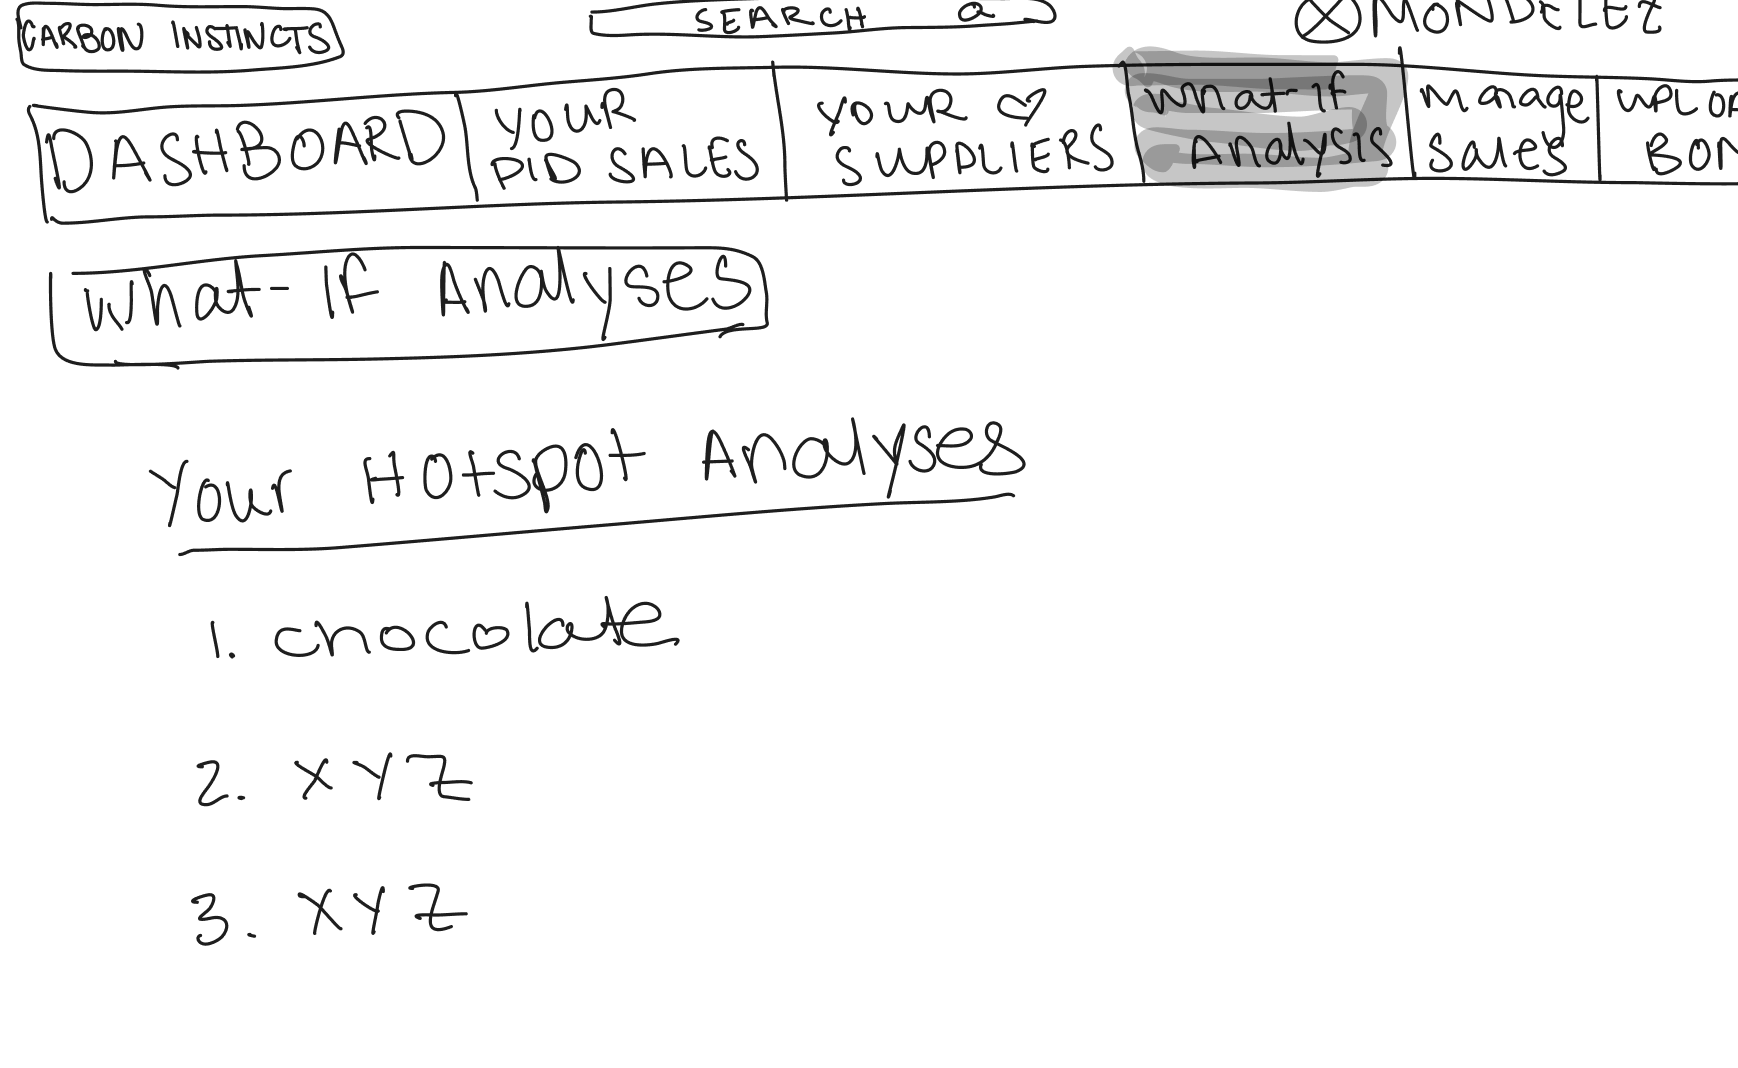 CARBON INSTINCTS
SEARCH
MONDELEZ
DASHBOARD
YOUR
PID SALES
YOUR ♡
SUPPLIERS
What-If
Analysis
Manage
Sales
UPLOA
BOM
What-If Analyses
Your Hotspot Analyses
1. chocolate
2. XYZ
3. XYZ